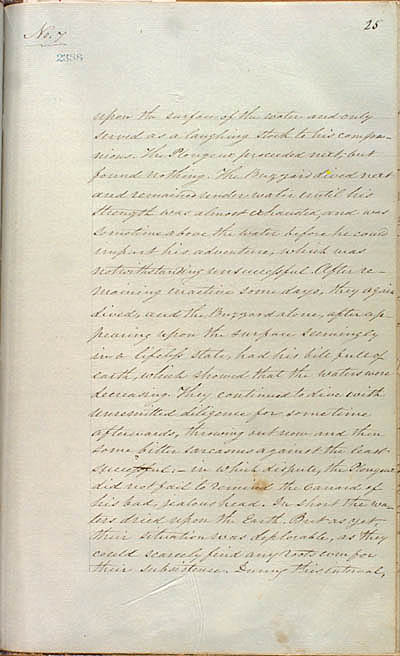 No. 7
25
2388
upon the surface of the water and only
served as a laughing stock to his compa-
nions. The Plongeur proceeded next, but
found nothing. The Buzzard dived next
and remained under water until his
strength was almost exhausted, and was
sometime above the water before he could
impart his adventure, which was
notwithstanding unsuccessful. After re-
maining inactive some days, they again
dived, and the Buzzard alone, after ap
pearing upon the surface seemingly
in a lifeless state, had his bill full of
earth, which showed that the waters were
decreasing. They continued to dive with
unremitted diligence for some time
afterwards, throwing out now and then
some bitter sarcasms against the least
successful, – in which dispute, the Plongeur
did not fail to remind the Canard of
his bad, jealous head. In short the wa-
ters dried upon the Earth. But as yet
their situation was deplorable, as they
could scarcely find any roots even for
their subsistence. During this interval,